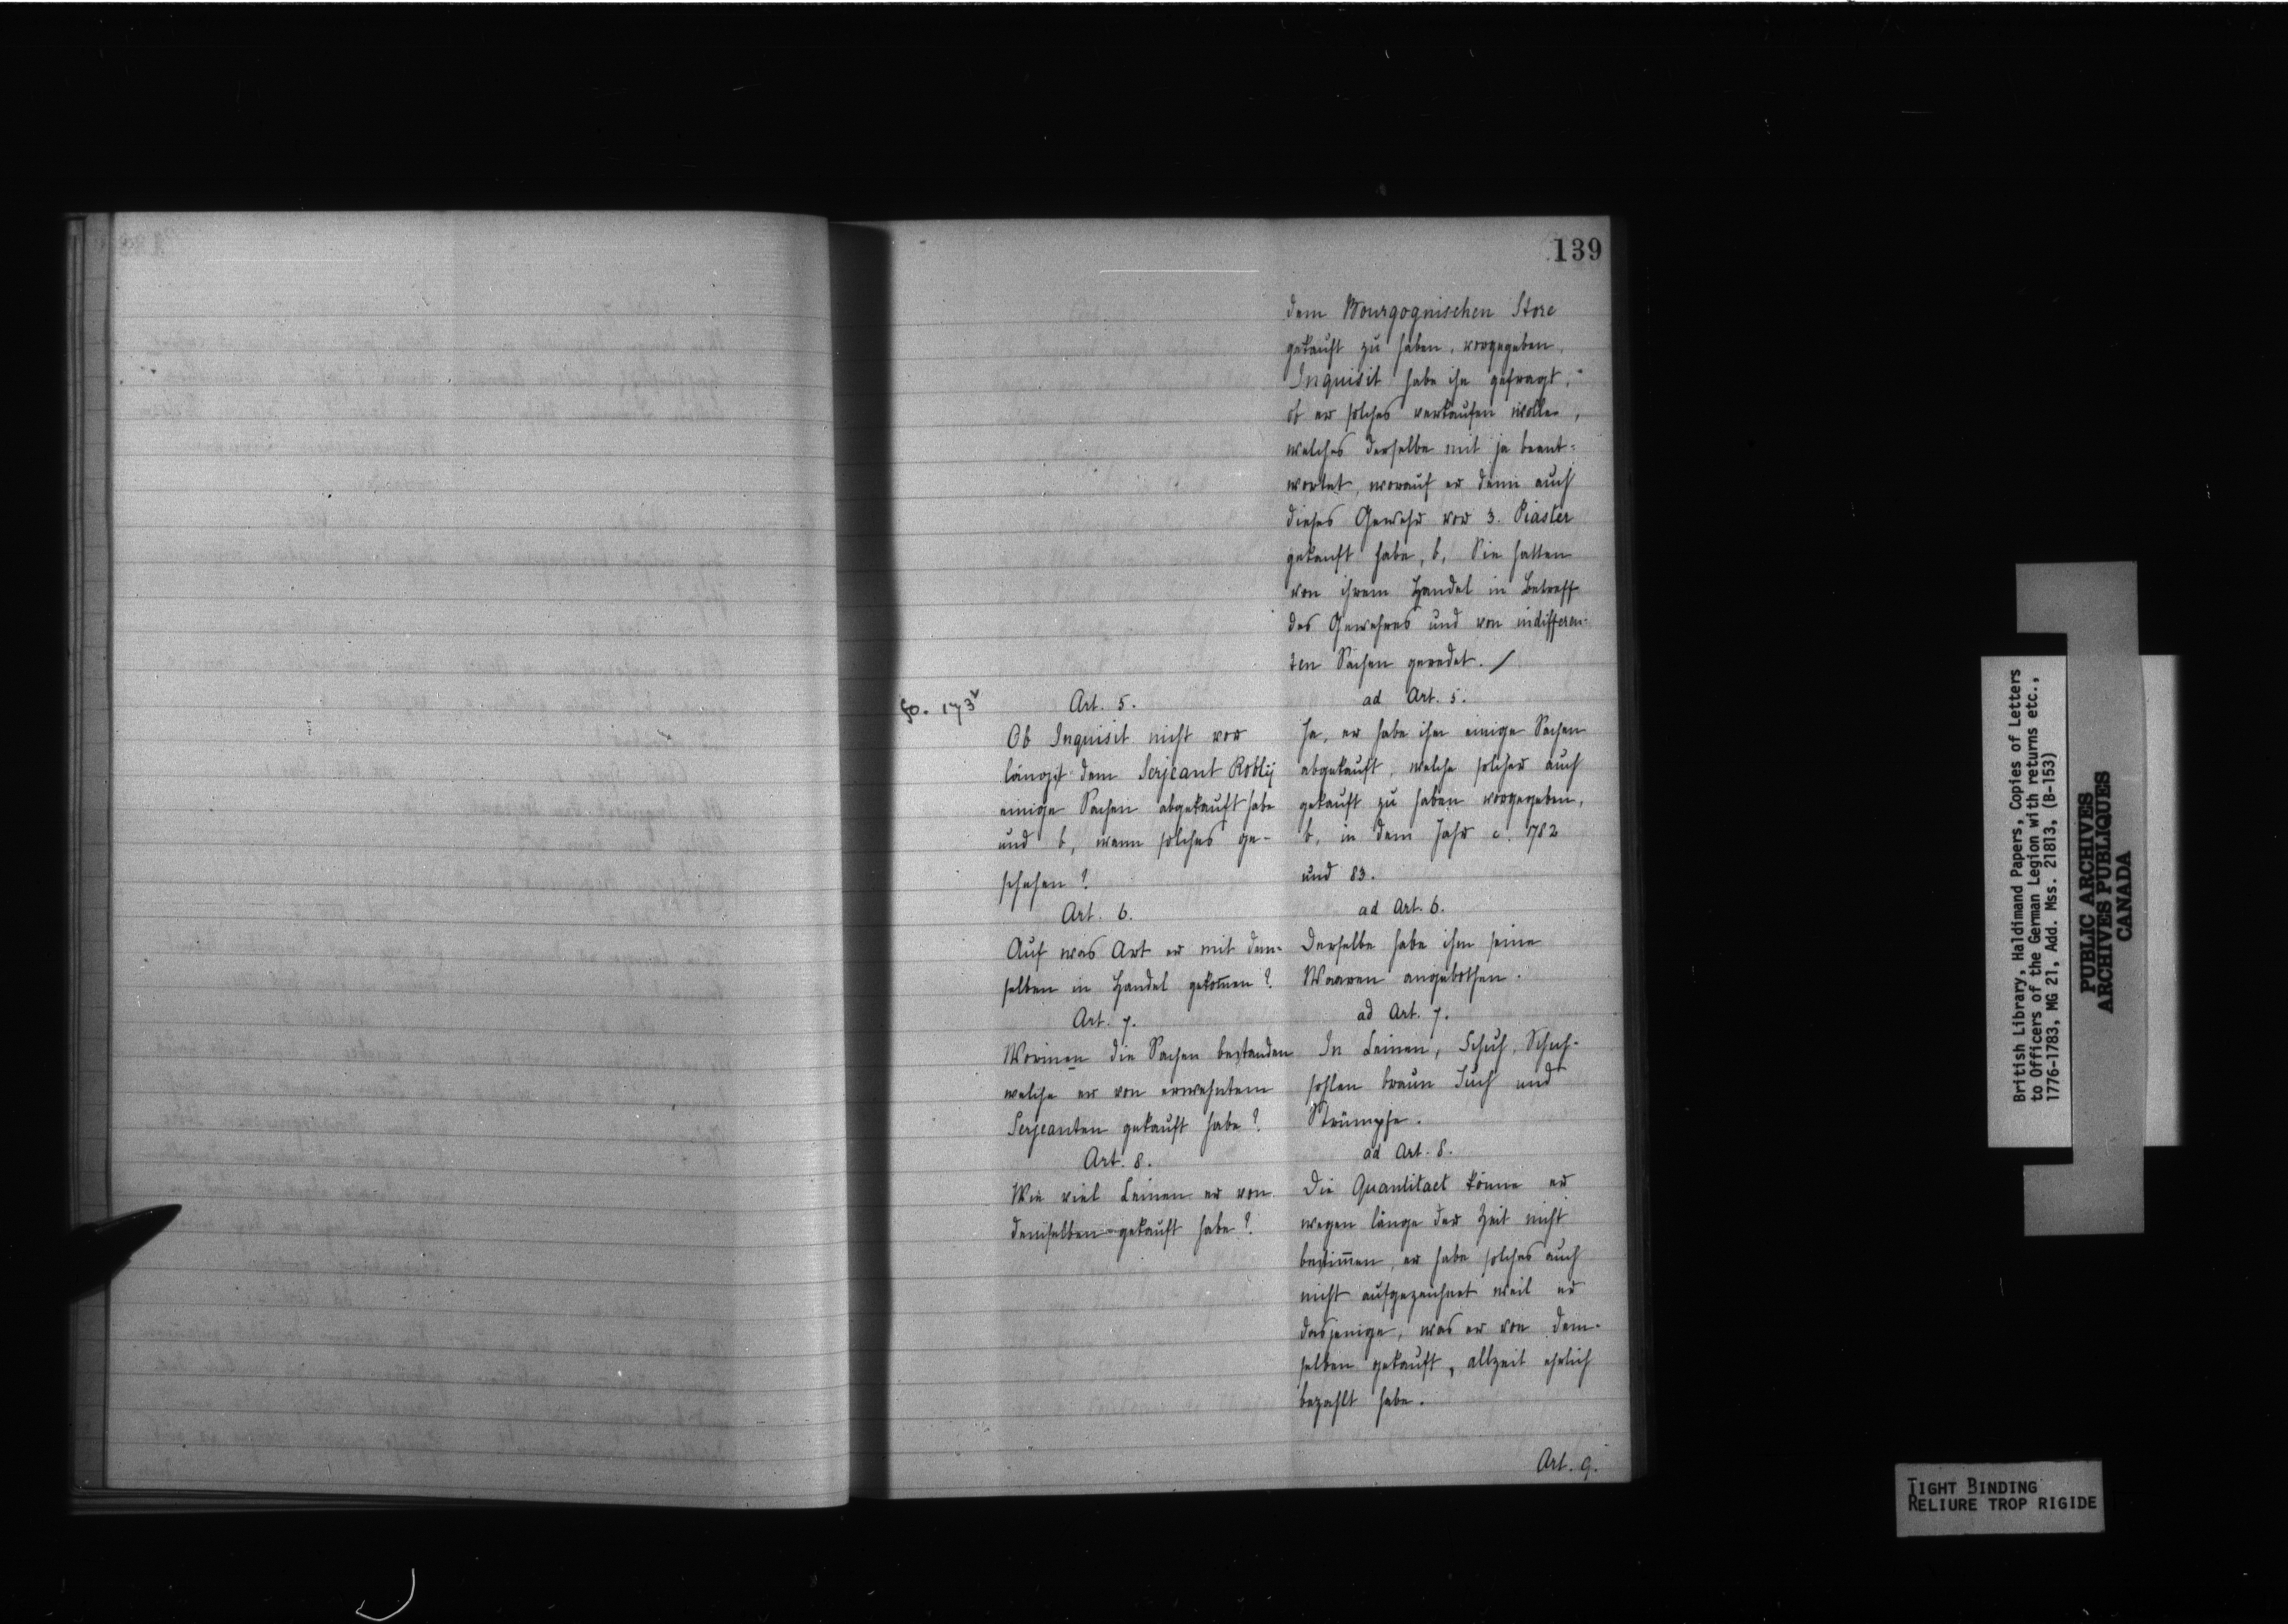 139
dem Bourgognischen Store
gekauft zu haben, vorgegeben,
Inquisit habe ihn gefragt,
ob er solches verkaufen wolle,
welches derselbe mit ja beant-
wortet, worauf er denn auch
dieses Gewehr vor 3. Piaster
gekauft habe, b, Sie hätten
von ihrem Handel in Betreff
des Gewehres und von indifferen-
ten Sachen geredet. /
fo. 173v
Art. 5.
Ob Inquisit nicht vor
längst dem Serjeant Robly
einige Sachen abgekauft habe
und b, wenn solches ge-
schehen?
ad Art. 5.
Ja, er habe ihm einige Sachen
abgekauft, welche solcher auch
gekauft zu haben vorgegeben,
b, in dem Jahr c. 1782
und 83.
Art. 6.
Auf was Art er mit dem-
selben in Handel gekom̄en?
ad Art. 6.
Derselbe habe ihm seine
Waaren angebothen.
Art. 7.
Worinen die Sachen bestanden
welche er von erwehntem
Serjeanten gekauft habe?
ad Art. 7.
In Leinen, Schuh, Schuh-
sohlen braun Tuch und
Strümpfe.
Art. 8.
Wie viel Leinen er von
demselben gekauft habe?
ad Art. 8.
Die Quantitaet könne er
wegen länge der Zeit nicht
bestim̄en, er habe solches auch
nicht aufgezeichnet weil er
dasjenige, was er von dem-
selben gekauft, allzeit ehrlich
bezahlt habe.
Art. 9.
British Library, Haldimand Papers, Copies of Letters
to Officers of the German Legion with returns etc.,
1776-1783, MG 21, Add. Mss. 21813, (B-153)
PUBLIC ARCHIVES
ARCHIVES PUBLIQUES
CANADA
TIGHT BINDING
RELIURE TROP RIGIDE